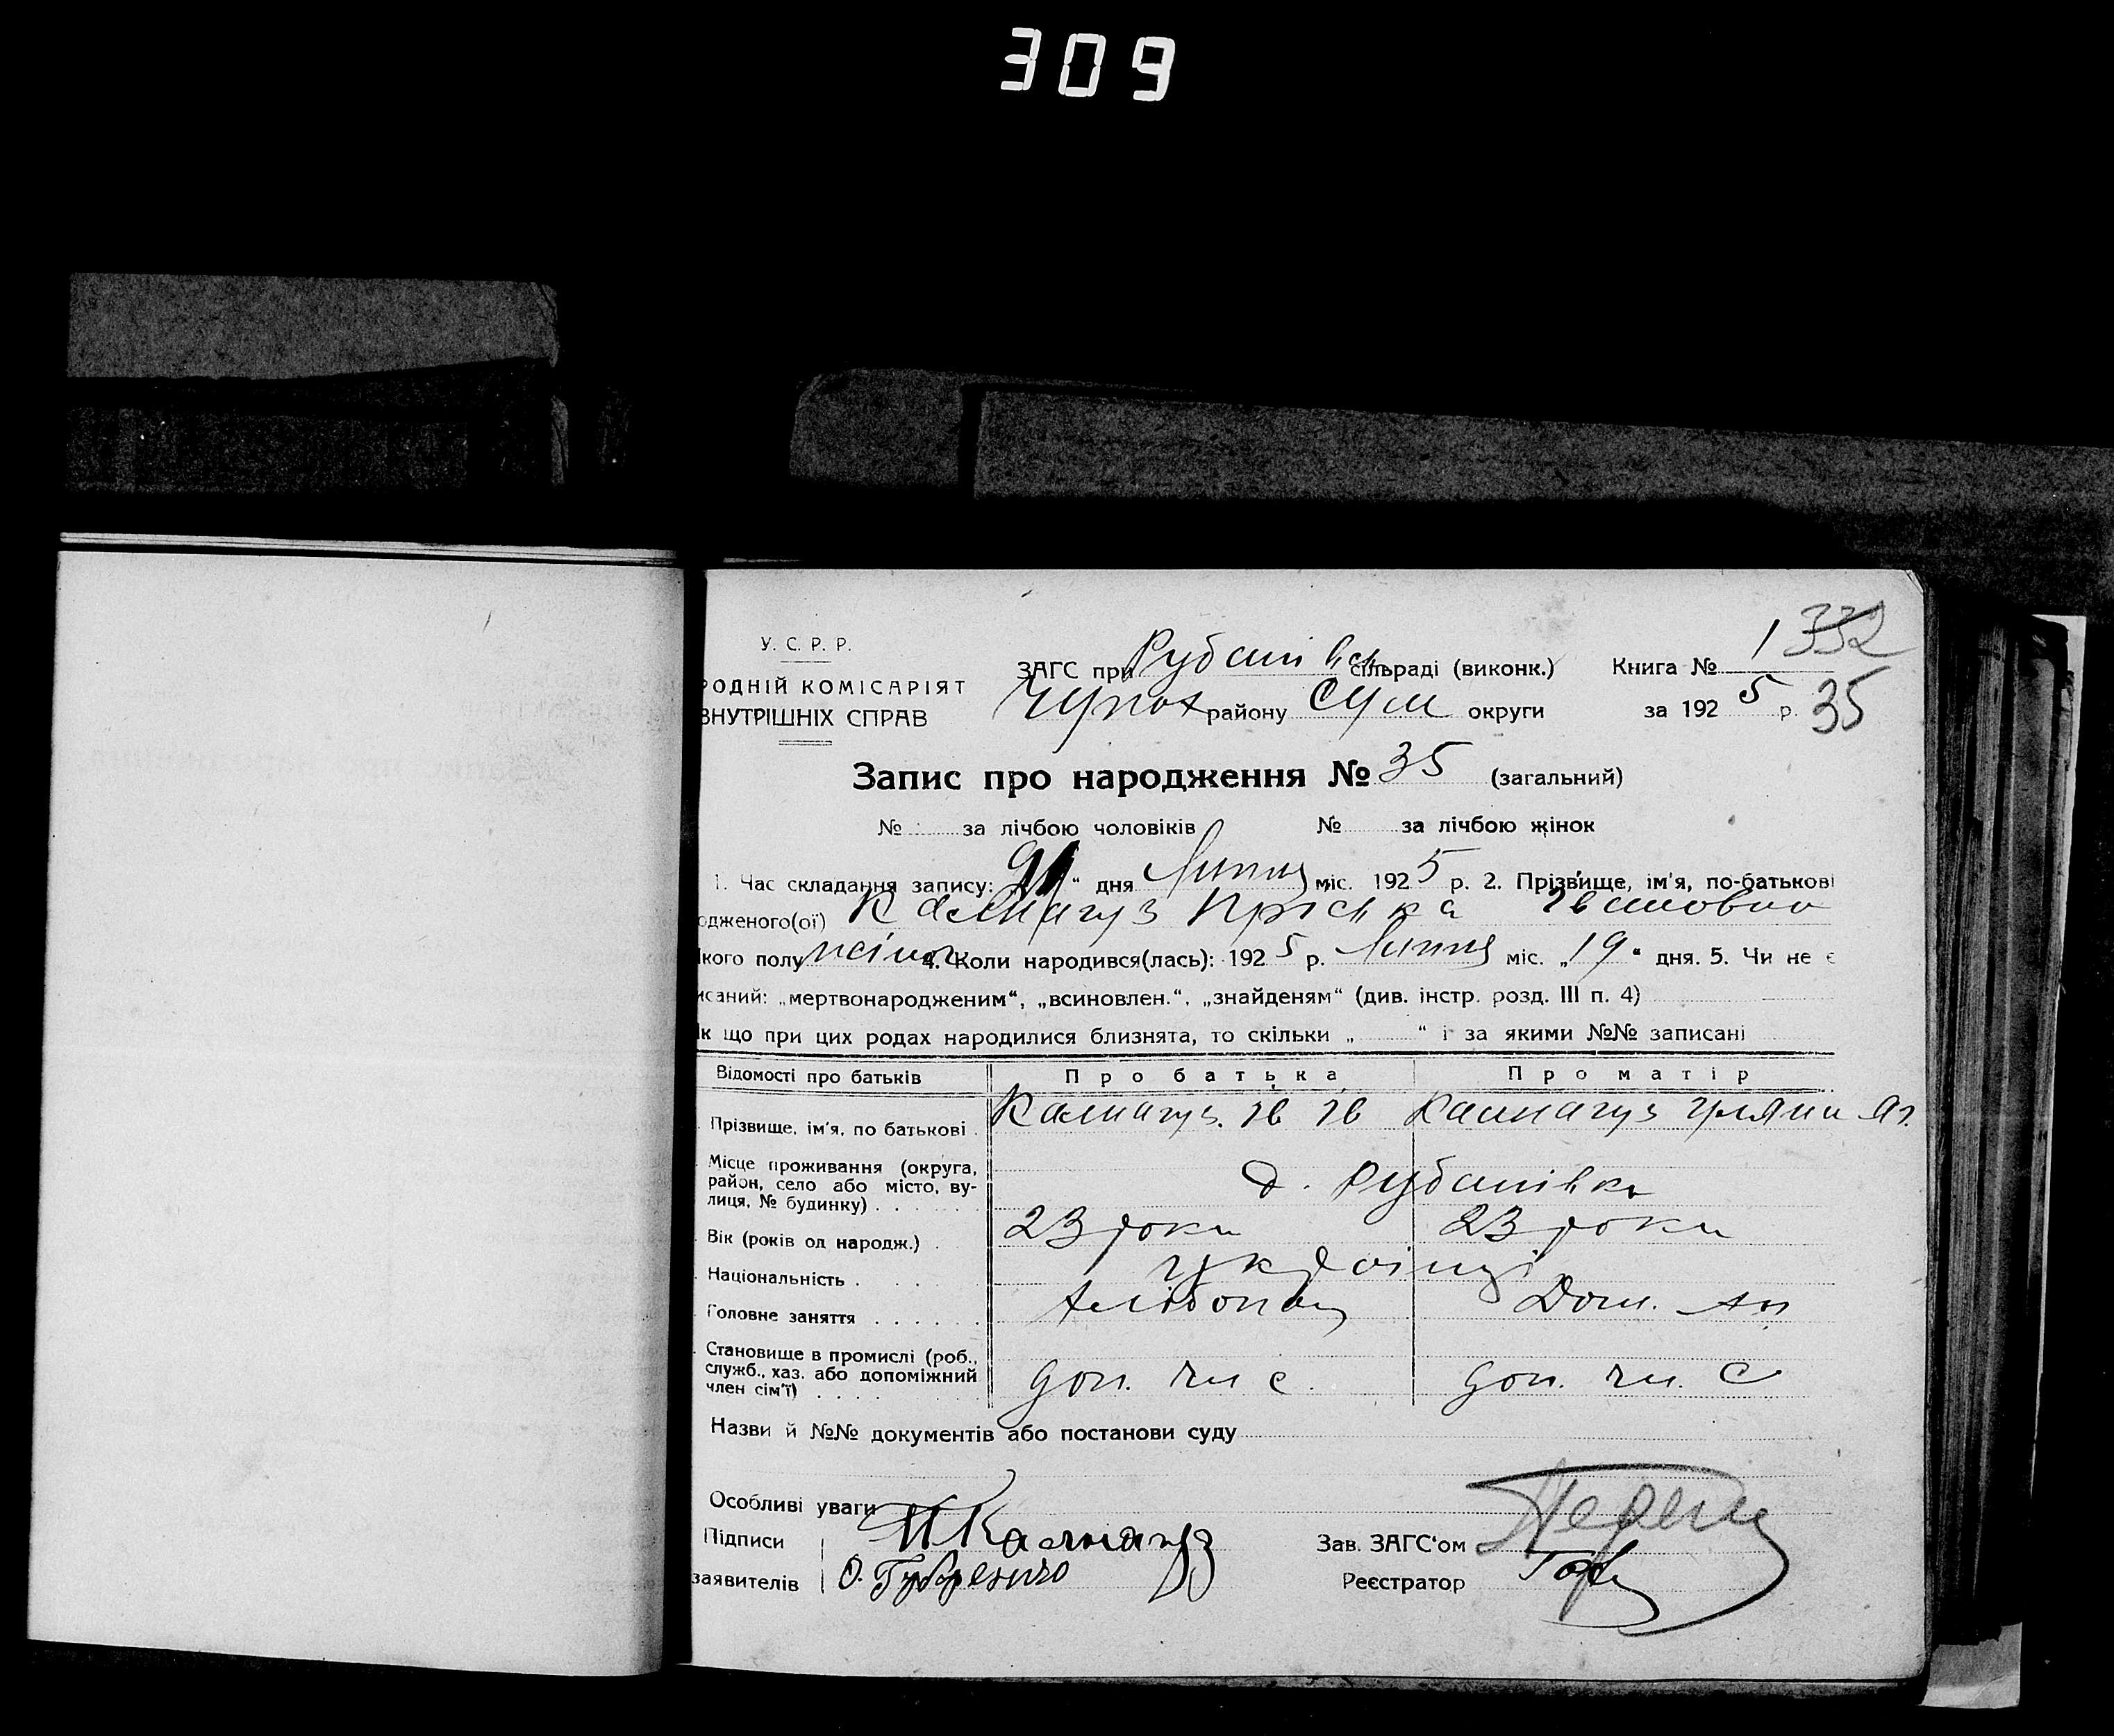 309
У. С. Р. Р.
РОДНІЙ КОМІСАРІЯТ
ВНУТРІШНІХ СПРАВ
ЗАГС при Рубанівск сільраді (виконк.)
району Сум округи
Книга № 1 332
за 1925 р. 35
Запис про народження № 35 (загальний)
№ за лічбою чоловіків № за лічбою жінок
1. Час складання запису: 21 " дня Липня міс. 1925 р. 2. Прізвище, ім'я, по-батькові
одженого(ої) Калнагуз Пріська Івановна
кого полу жіноч 4. Коли народився(лась): 1925 р. Липня міс. „19" дня. 5. Чи не є
исаний: „мертвонародженим", „всиновлен.", „знайденям" (див. інстр. розд. III п. 4)
к що при цих родах народилися близнята, то скільки „ " і за якими №№ записані
Відомості про батьків Про батька Про матір
Прізвище, ім'я, по батькові Калнагуз Ів Ів Калнагуз Уляни
Місце проживання (округа,
район, село або місто, ву-
лиця, № будинку) . . . . . . д. Рубанівка
Вік (років од народж.) . 23 роки 23 роки
Національність . . . . українці
Головне заняття . . . . . . хлібопаш Дом.
Становище в промислі (роб.,
служб., хаз. або допоміжний
член сім'ї) . . . . . доп. чл с. доп. чл. с
Назви й №№ документів або постанови суду
Особливі уваги
Підписи И Калнагуз
заявителів О.
Зав. ЗАГС'ом
Реєстратор